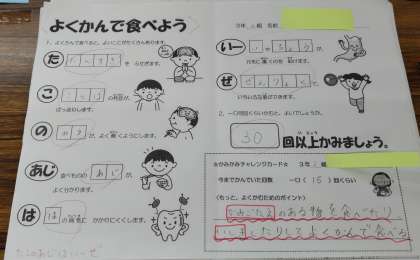 よくかんで食べよう
1、よくかんで食べると、よいことがたくさんあります。
た たべすぎ
をふせぎます。
こ ことば
の発音が、
はっきりします。
の のう
が、よく働くようにします。
あじ 食べものの あじ が、
よく分かります。
は はの病気
にかかりにくくします。
たこのあじはいーぜ
3年 組 名前
いー いのちょう が、
ぜ ぜんりょく で、
2、一口何回くらいかむと、よいでしょうか。
30 回以上かみましょう。
☆かみかみチャレンジカード☆ 3年 組
今までかんでいた回数 一口(15)回くらい
(もっと、よくかむためのポイント)
かみごたえのある物を食べたり
いしきしたりしてよくかんで食べる